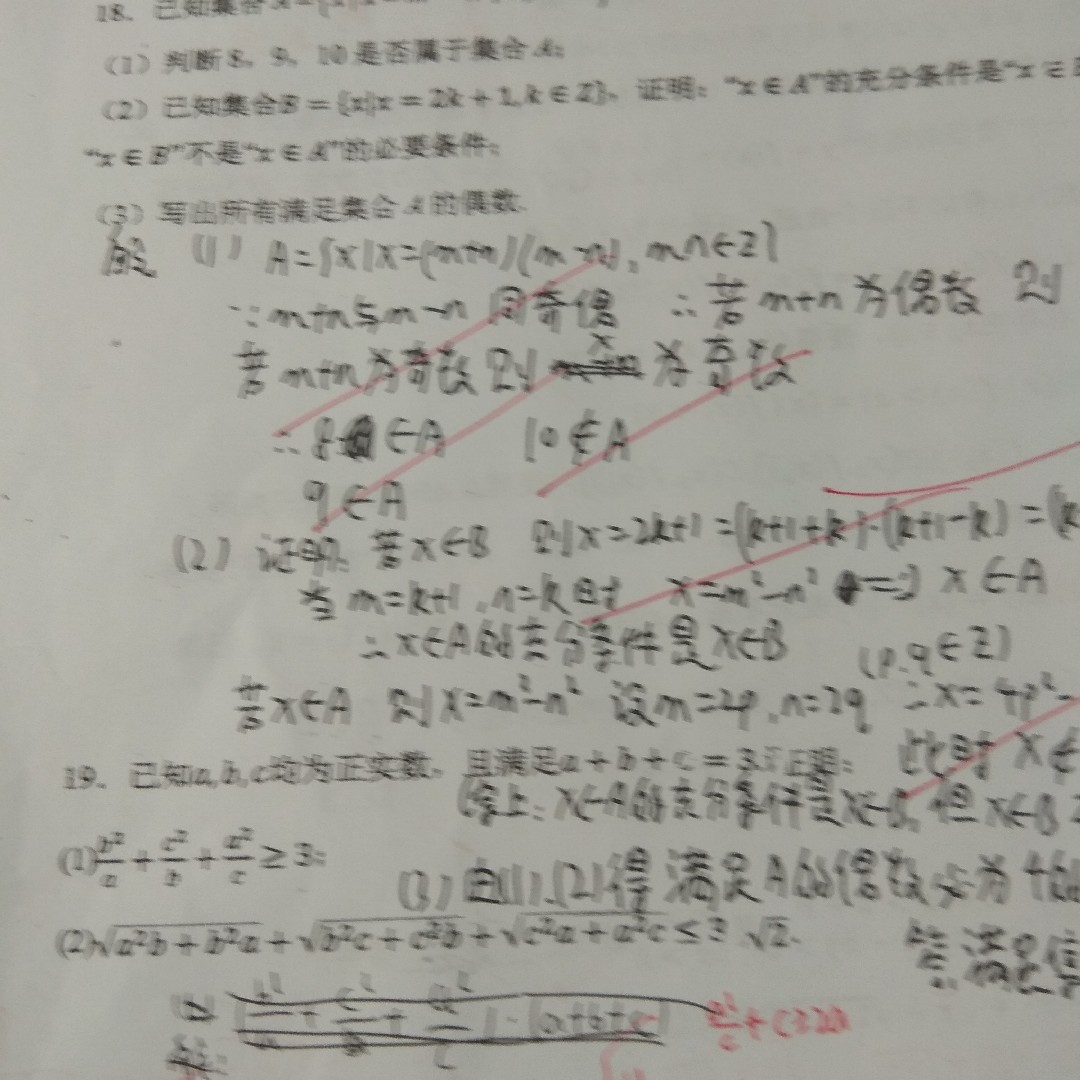 18. 已知集合A={x|x=
(1) 判断8，9，10是否属于集合A;
(2) 已知集合B={x|x=2k+1,k∈Z}，证明："x∈A"的充分条件是"x∈B
"x∈B"不是"x∈A"的必要条件;
(3) 写出所有满足集合A的偶数.
解 (1) A={x|x=(m+n)(m-n), m,n∈Z}
∵m+n与m-n同奇偶 ∴若m+n为偶数 则
若m+n为奇数 则 x 为奇数
∴8∈A 10∉A
9∈A
(2) 证明: 若x∈B 则x=2k+1=(k+1+k)·(k+1-k)=(k
当m=k+1,n=k时 x=m²-n² => x∈A
∴x∈A的充分条件是x∈B (p.q∈Z)
若x∈A 则x=m²-n² 设m=2p,n=2q ∴x=4p²-
此时 x∉
19. 已知a,b,c均为正实数，且满足a+b+c=3.证明：
综上: x∈A的充分条件是x∈B, 但x∈B
(1) b²/a + c²/b + a²/c ≥ 3;
(3) 由(1).(2)得 满足A的偶数必为4的
(2) √(a²b+b²a) + √(b²c+c²b) + √(c²a+a²c) ≤ 3√2.
a²/c + c ≥ 2a
解: